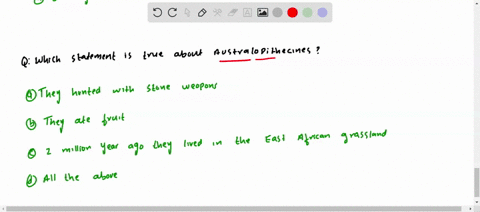 Q: Which statement is true about Australopithecines?
a They hunted with stone weapons
b They ate fruit
c 2 million year ago they lived in the East African grassland
d All the above